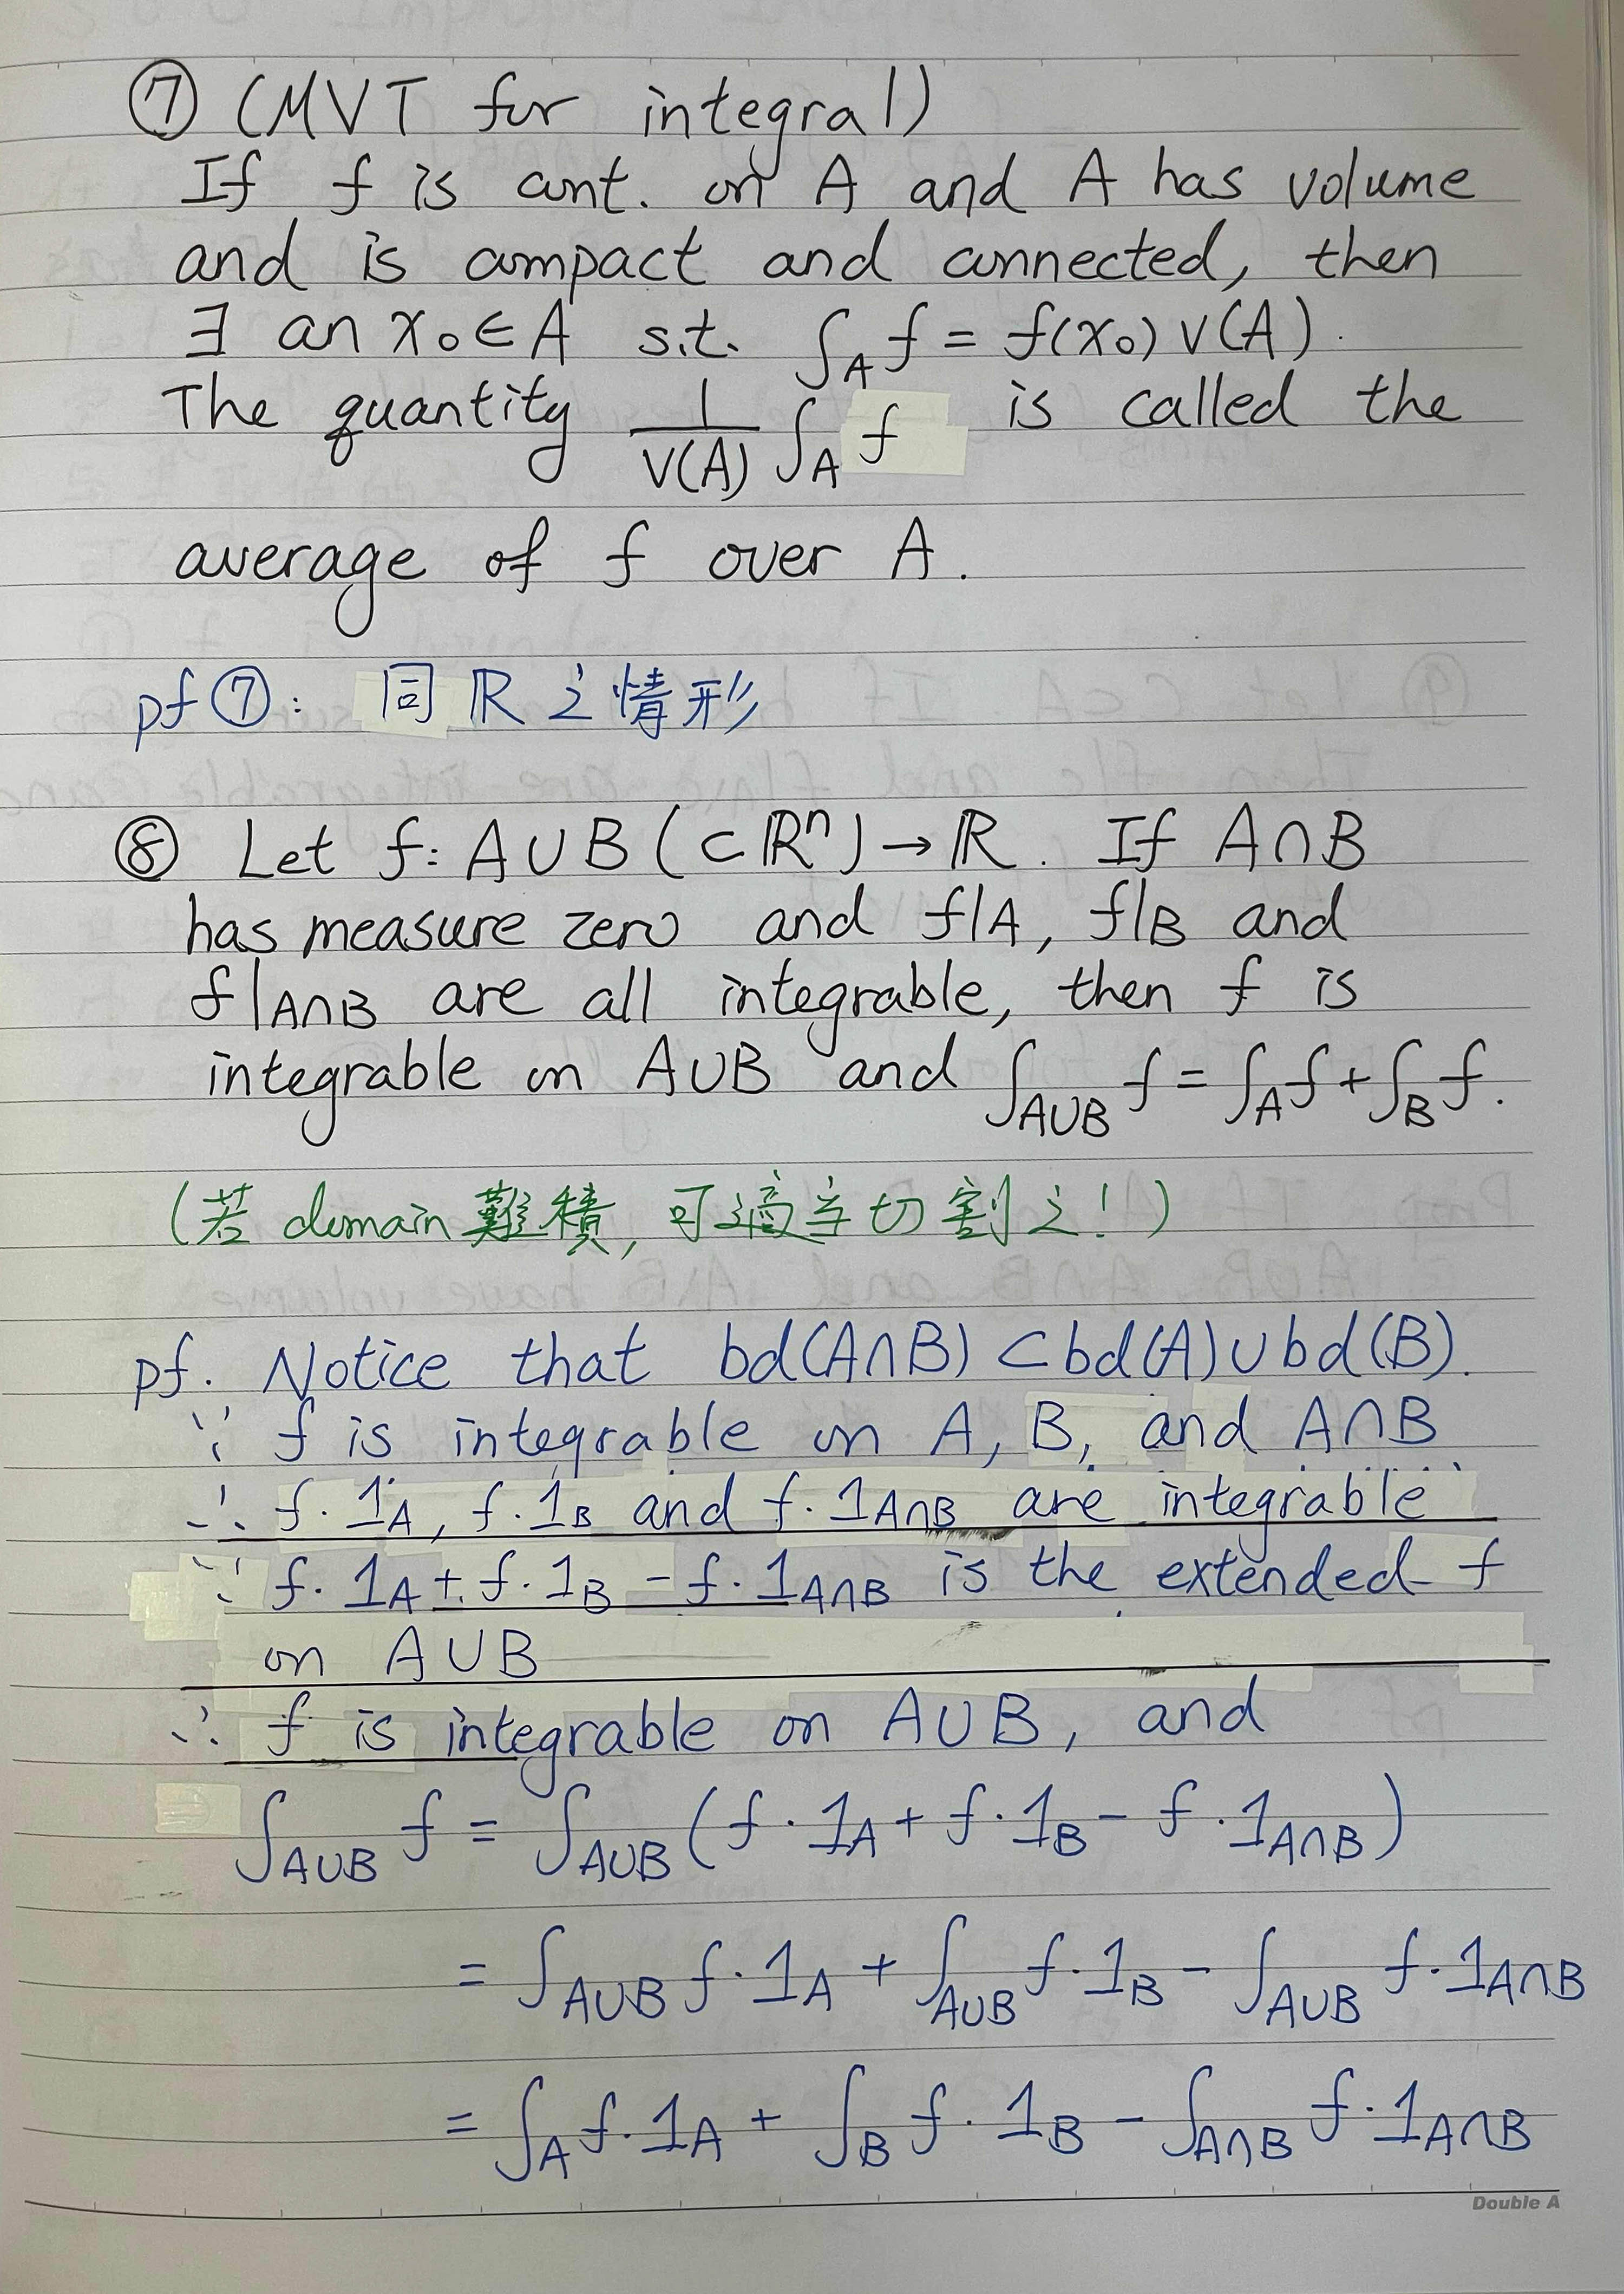 ⑦ (MVT for integral)
If f is cont. on A and A has volume
and is compact and connected, then
∃ an x₀∈A s.t. ∫_A f = f(x₀) v(A).
The quantity 1/v(A) ∫_A f is called the
average of f over A.
pf ⑦: 同 ℝ 之情形
⑧ Let f: A∪B (⊂ℝⁿ) → ℝ. If A∩B
has measure zero and f|A, f|B and
f|A∩B are all integrable, then f is
integrable on A∪B and ∫_{A∪B} f = ∫_A f + ∫_B f.
(若 domain 難積, 可適当切割之!)
pf. Notice that bd(A∩B) ⊂ bd(A)∪bd(B).
∵ f is integrable on A, B, and A∩B
∴ f·1_A, f·1_B and f·1_{A∩B} are integrable
∵ f·1_A + f·1_B - f·1_{A∩B} is the extended f
on A∪B
∴ f is integrable on A∪B, and
∫_{A∪B} f = ∫_{A∪B} (f·1_A + f·1_B - f·1_{A∩B})
= ∫_{A∪B} f·1_A + ∫_{A∪B} f·1_B - ∫_{A∪B} f·1_{A∩B}
= ∫_A f·1_A + ∫_B f·1_B - ∫_{A∩B} f·1_{A∩B}
Double A